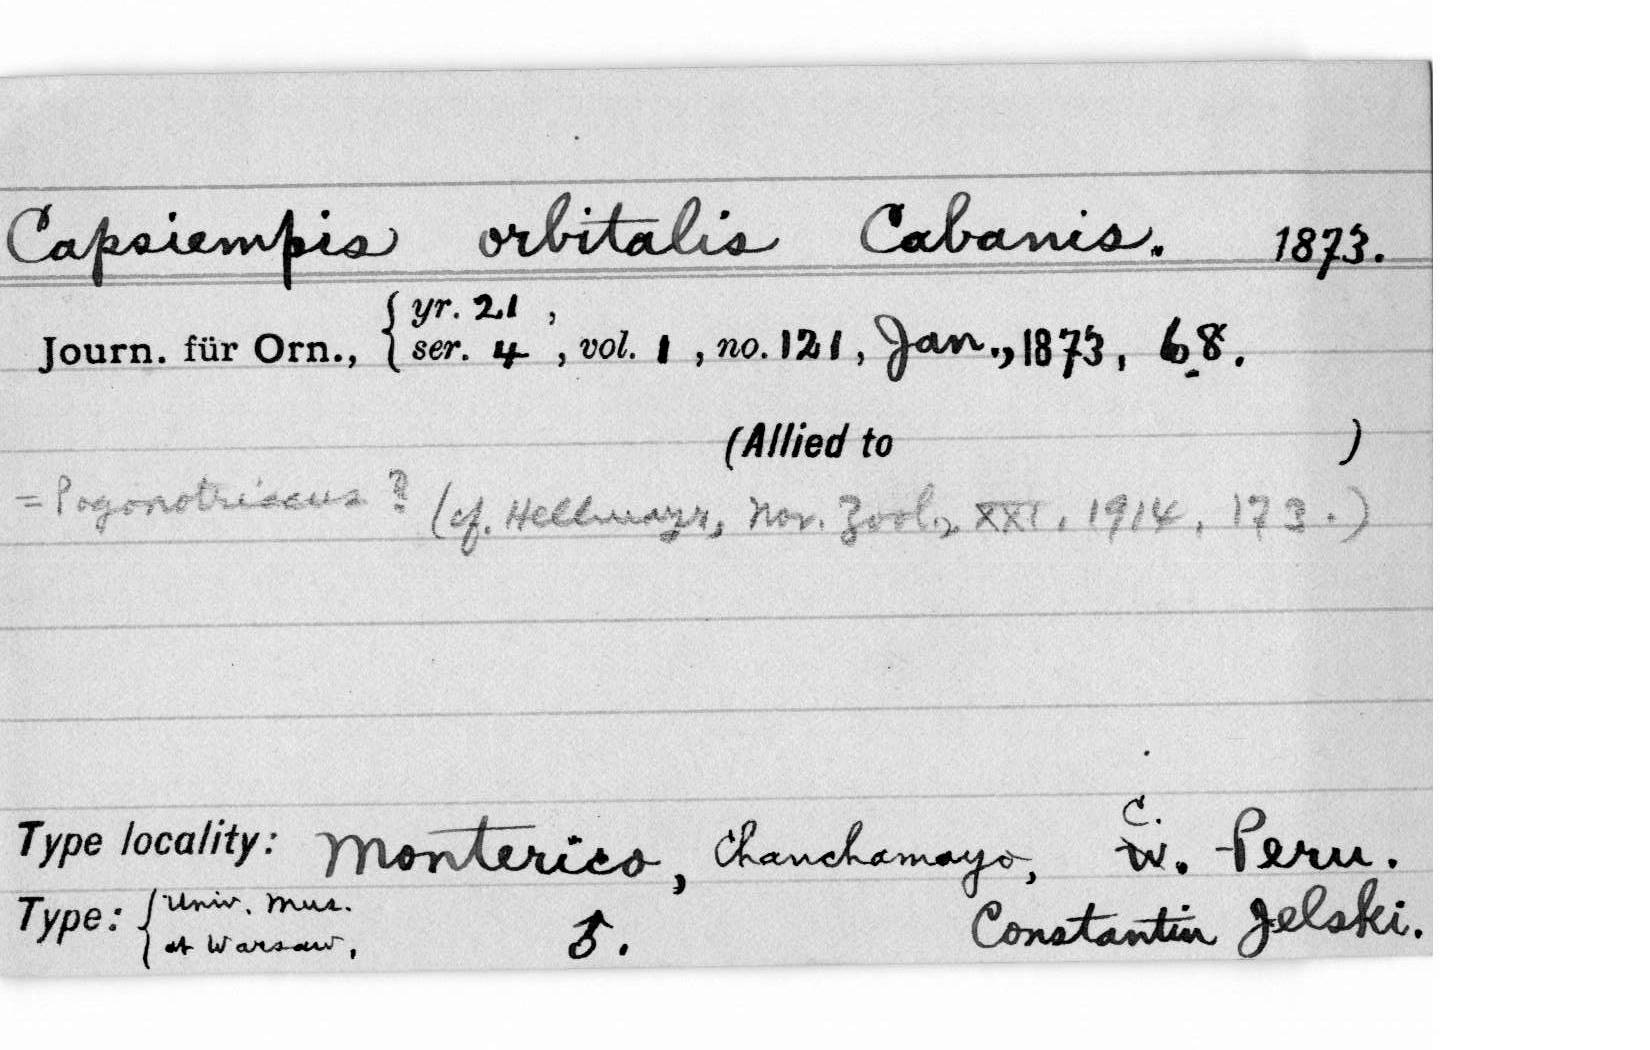 Capsiempis orbitalis Cabanis. 1873.
Journ. für Orn., { yr. 21 ,
ser. 4 , vol. 1 , no. 121 , Jan., 1873, 68.
(Allied to )
= Pogonotriccus ? (cf. Hellmayr, Nov. Zool., XXI, 1914, 173.)
C.
Type locality: Monterico, Chanchamayo, W. Peru.
Type: { Univ. Mus.
at Warsaw, ♂. Constantin Jelski.